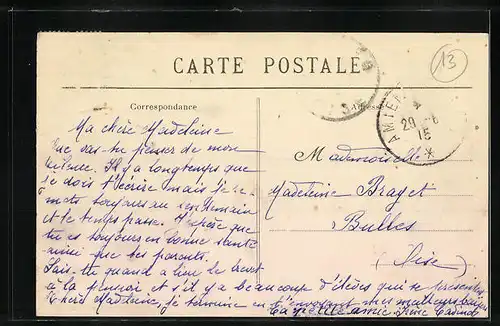 13
CARTE POSTALE
Correspondance
Adresse
AMIENS
29
15
Ma chère Madeleine
Que vas-tu penser de mon
silence. Il y a longtemps que
je dois t'écrire mais je re
mets toujours au lendemain
et le temps passe. J'espère que
tu es toujours en bonne santé
ainsi que tes parents.
Sais-tu quand a lieu le brevet
à la pension et s'il y a beaucoup d'élèves qui se présentent
Chère Madeleine, je termine en t'envoyant mes meilleurs baisers
Ta petite amie
Mademoiselle
Madeleine Brayet
Bulles
(Oise)